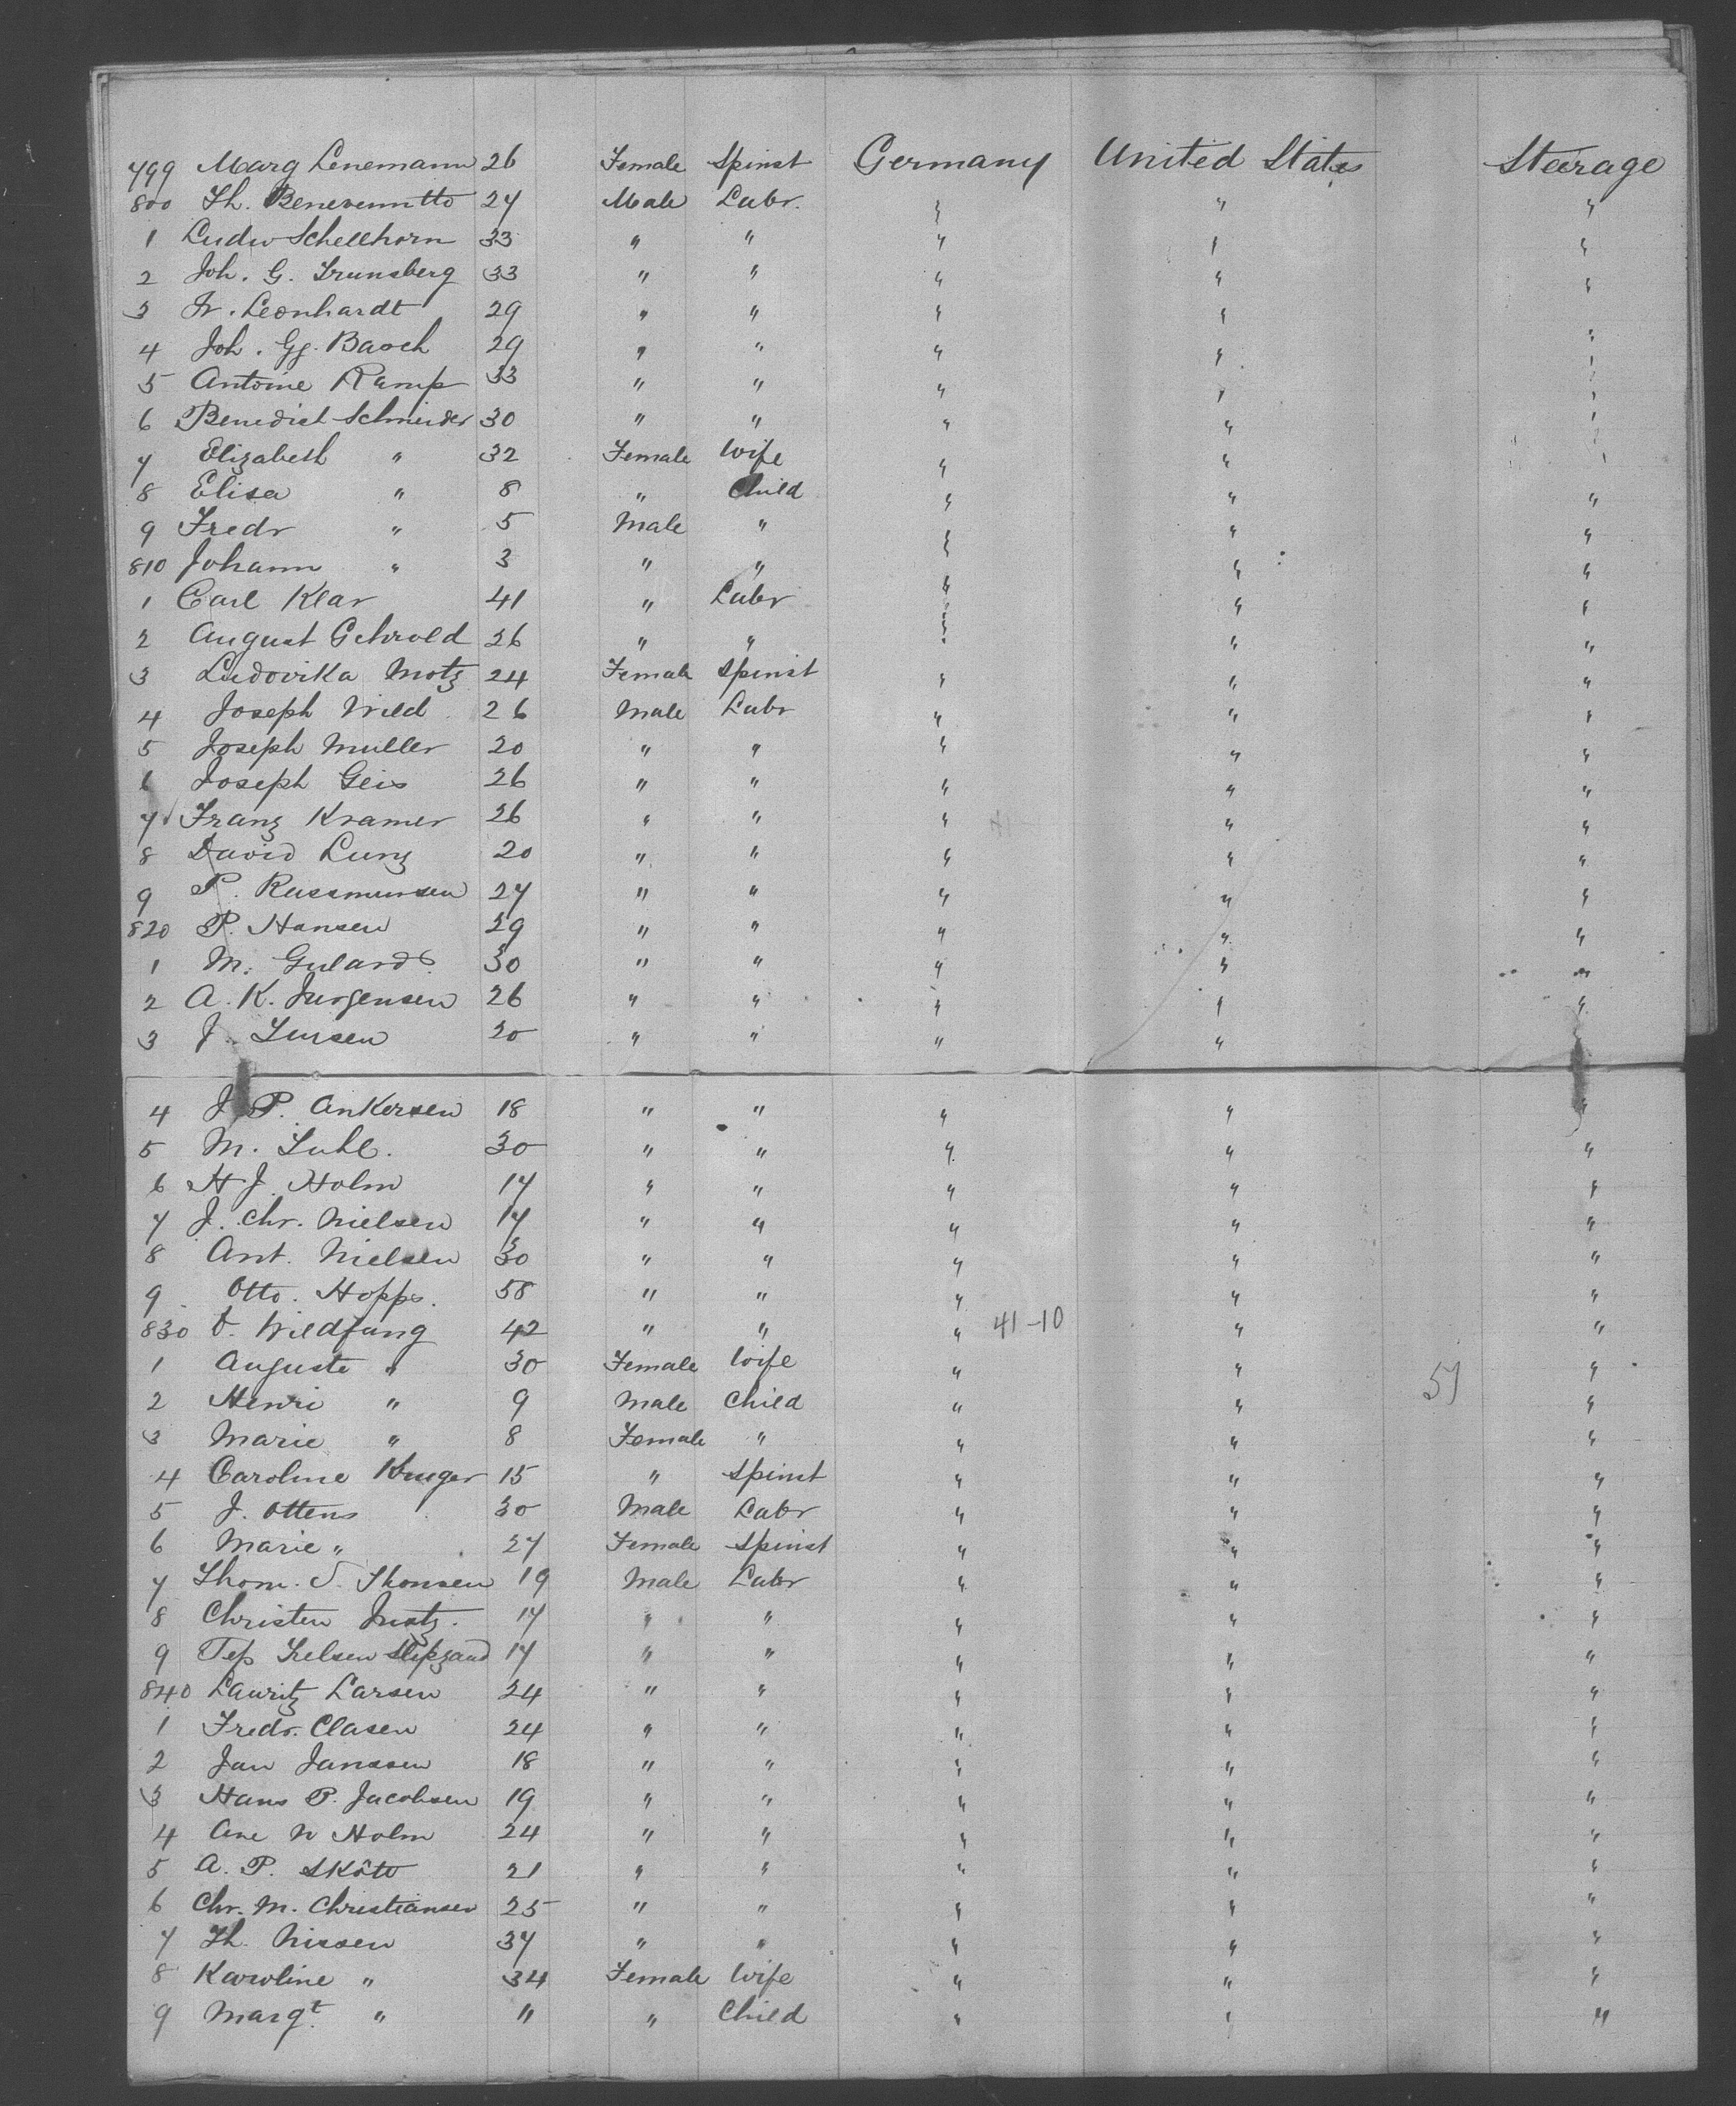 799 Marg Lenemann 26 Female Spinst Germany United States Steerage
800 Th. Benevenntto 27 Male Labr. " " "
1 Ludw Schellhorn 33 " " " " "
2 Joh. G. Trunsberg 33 " " " " "
3 Fr. Leonhardt 29 " " " " "
4 Joh. Gg. Basch 29 " " " " "
5 Antoine Kamp 33 " " " " "
6 Benedict Schneider 30 " " " " "
7 Elizabeth " 32 Female Wife " " "
8 Elisa " 8 " Child " " "
9 Fredr " 5 Male " " " "
810 Johann " 3 " " " " "
1 Carl Klar 41 " Labr " " "
2 August Gehrold 26 " " " " "
3 Ludovika Motz 24 Female Spinst " " "
4 Joseph Wild 26 Male Labr " " "
5 Joseph Muller 20 " " " " "
6 Joseph Geis 26 " " " " "
7 Franz Kramer 26 " " " " "
8 David Lung 20 " " " " "
9 P. Rassmussen 27 " " " " "
820 P. Hansen 29 " " " " "
1 M. 30 " " " " "
2 A. K. Jurgensen 26 " " " " "
3 J. 20 " " " " "
4 J. P. Ankersen 18 " " " " "
5 M. Juhl. 30 " " " " "
6 H J. Holm 17 " " " " "
7 J. Chr. Nielsen 17 " " " " "
8 Ant. Nielsen 30 " " " " "
9 Otto. Hopps. 58 " " " " "
830 V. Wildfang 42 " " " 41-10 " "
1 Auguste " 30 Female Wife " " "
2 Henri " 9 Male Child " " 57 "
3 Marie " 8 Female " " " "
4 Caroline Kruger 15 " Spinst " " "
5 J. Ottens 30 Male Labr " " "
6 Marie " 27 Female Spinst " " "
7 Thom. S. Thonsen 19 Male Labr " " "
8 Christen 17 " " " " "
9 17 " " " " "
840 Lauritz Larsen 24 " " " " "
1 Fredr. Clasen 24 " " " " "
2 Jan Janssen 18 " " " " "
3 Hans P. Jacobsen 19 " " " " "
4 Ane N Holm 24 " " " " "
5 A. P. Skôtt 21 " " " " "
6 Chr. M. Christiansen 25 " " " " "
7 Th. Nissen 37 " " " " "
8 Karoline " 34 Female Wife " " "
9 Margt. " " " Child " " "